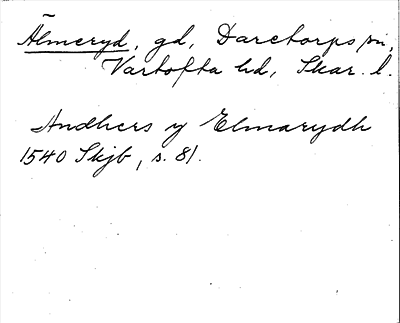 Älmeryd, gd, Daretorps sn,
Vartofta hd, Skar. l.
Andhers y Elmarydh
1540 Skjb, s. 81.